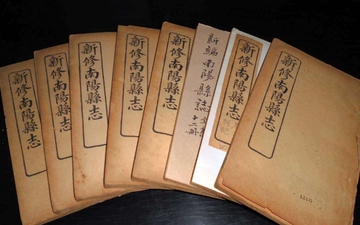 新修南陽縣志
新修南陽縣志
新修南陽縣志
新修南陽縣志
新修南陽縣志
新編南陽縣誌
新修南陽縣志
新修南陽縣志